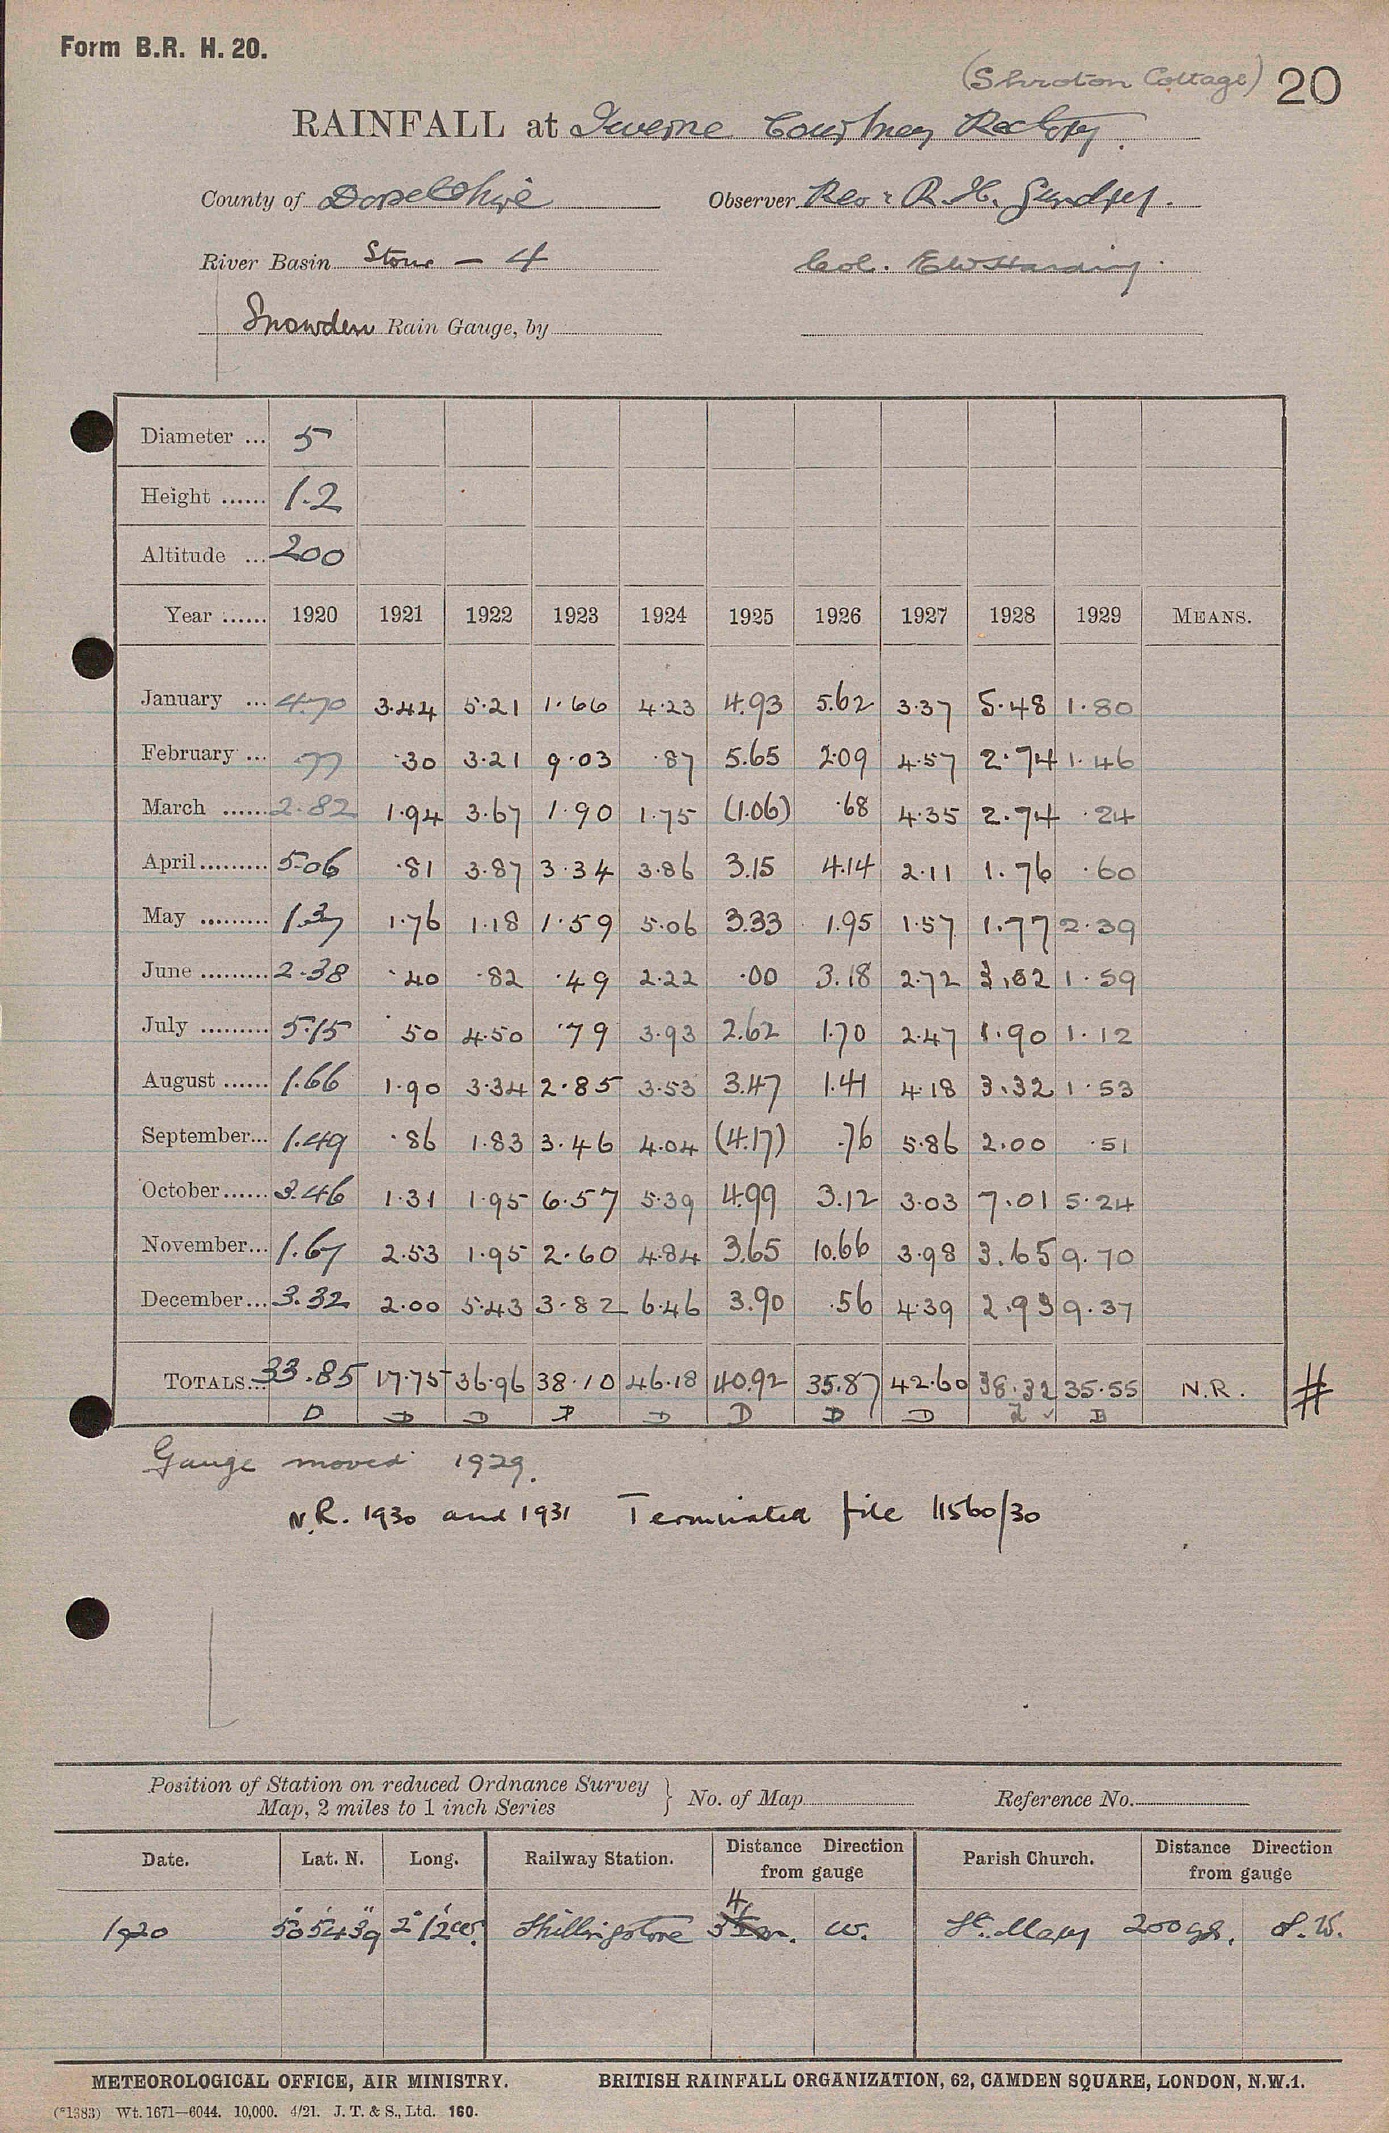 Form B.R. H. 20.
(Shroton Cottage) 20
RAINFALL at Iwerne Courtney Rectory.
County of Dorsetshire Observer Rev: R. H.
River Basin Stour — 4 Col. E W Harding.
Snowden Rain Gauge, by
Diameter ... 5
Height ...... 1.2
Altitude ... 200
Year ...... 1920 1921 1922 1923 1924 1925 1926 1927 1928 1929 MEANS.
January ... 4.70 3.44 5.21 1.66 4.23 4.93 5.62 3.37 5.48 1.80
February ... .77 .30 3.21 9.03 .87 5.65 2.09 4.57 2.74 1.46
March ...... 2.82 1.94 3.67 1.90 1.75 (1.06) .68 4.35 2.74 .24
April ......... 5.06 .81 3.87 3.34 3.86 3.15 4.14 2.11 1.76 .60
May ......... 1.37 1.76 1.18 1.59 5.06 3.33 1.95 1.57 1.77 2.39
June ......... 2.38 .40 .82 .49 2.22 .00 3.18 2.72 3.02 1.59
July ......... 5.15 .50 4.50 .79 3.93 2.62 1.70 2.47 1.90 1.12
August ...... 1.66 1.90 3.34 2.85 3.53 3.47 1.41 4.18 3.32 1.53
September... 1.49 .86 1.83 3.46 4.04 (4.17) .76 5.86 2.00 .51
October...... 3.46 1.31 1.95 6.57 5.39 4.99 3.12 3.03 7.01 5.24
November... 1.67 2.53 1.95 2.60 4.84 3.65 10.66 3.98 3.65 9.70
December... 3.32 2.00 5.43 3.82 6.46 3.90 .56 4.39 2.93 9.37
TOTALS... 33.85 17.75 36.96 38.10 46.18 40.92 35.87 42.60 38.32 35.55 N.R. #
D D D D D D D D
Gauge moved 1929.
N.R. 1930 and 1931 Terminated file 11560/30
Position of Station on reduced Ordnance Survey Map, 2 miles to 1 inch Series } No. of Map Reference No.
Date. Lat. N. Long. Railway Station. Distance Direction from gauge Parish Church. Distance Direction from gauge
1920 50° 54' 39" 2° 12' W. Shillingstone 4 m. W. St. Mary 200 yds. S.W.
METEOROLOGICAL OFFICE, AIR MINISTRY. BRITISH RAINFALL ORGANIZATION, 62, CAMDEN SQUARE, LONDON, N.W.1.
(*1383) Wt. 1671—6044. 10,000. 4/21. J. T. & S., Ltd. 160.